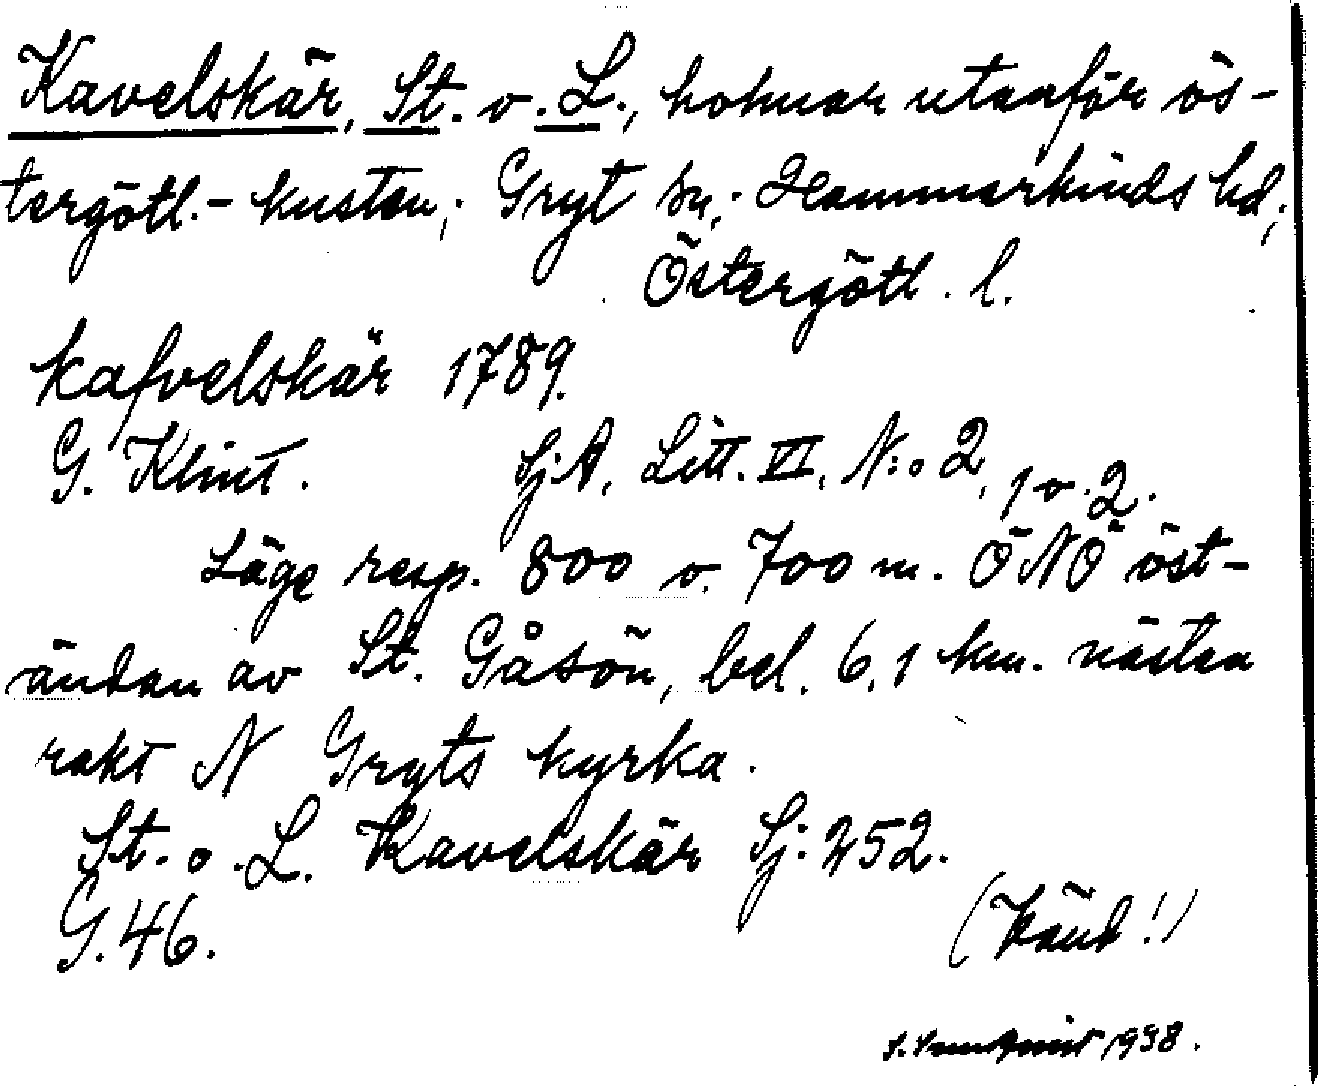 Kavelskär, St. o. L., holmar utanför ös-
tergötl.-kusten; Gryt sn; Hammarkinds hd;
Östergötl. l.
Kafvelskär 1789.
G. Klint. SjA, Litt. VI, N:o 2, 1 o. 2.
Läge resp. 800 o. 700 m. ÖNÖ öst-
ändan av St. Gåsön, bel. 6,1 km. nästan
rakt N Gryts kyrka.
St. o. L. Kavelskär Sj: 252.
G. 46. (Känd!)
1938.